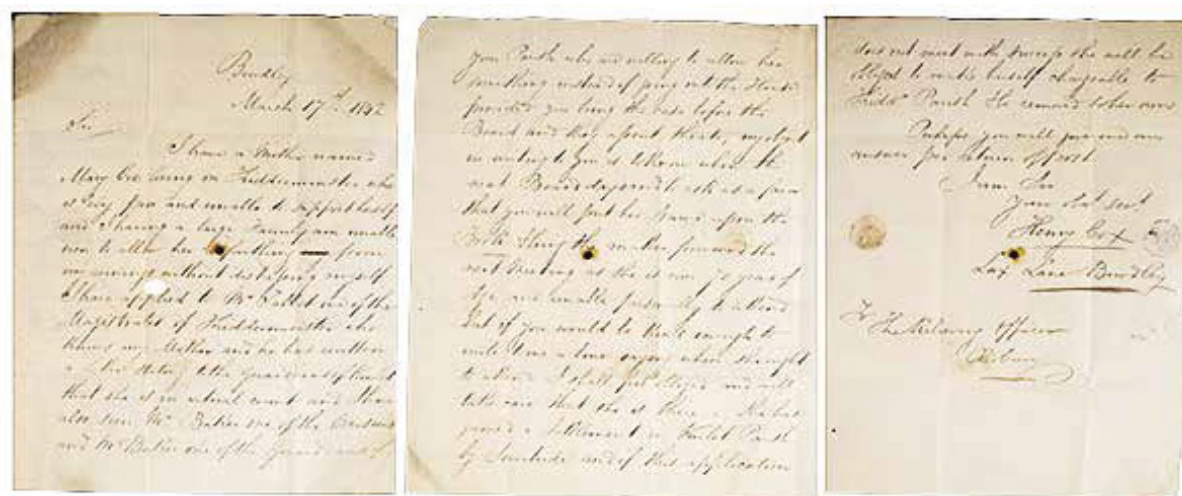 Bewdley
March 17th 1842
Sir
I have a Mother named
Mary Cox living in Kidderminster who
is very poor and unable to support herself
and I having a large family am unable
now to allow her farthing from
my earnings without distressing myself
I have applied to Mr one of the
Magistrates of Kidderminster who
knows my Mother and he has written
a line stating to the Guardians of
that she is in actual want and I have
also seen Mr one of the
and Mr one of the Guardians of
your Parish who are willing to allow her
something instead of going into the House
provided you bring the case before the
Board and they assent thereto, my object
in writing to you is to know when the
next Board day and to ask as a favour
that you will put her Name upon the
Book the matter forward the
next Meeting as she is now 70 years of
Age and unable to attend
but if you would be kind enough to
write me a line saying when she ought
to attend I shall feel obliged and will
take care that she is there. She has
gained a Settlement in Parish
by Servitude and if this application
does not meet with success she will be
obliged to make herself chargeable to
Kidder Parish & be removed to her own
Perhaps you will give me an
answer per return of post
I am Sir
Your obt servt
Henry Cox
Lax Lane Bewdley
To
The Relieving Officer